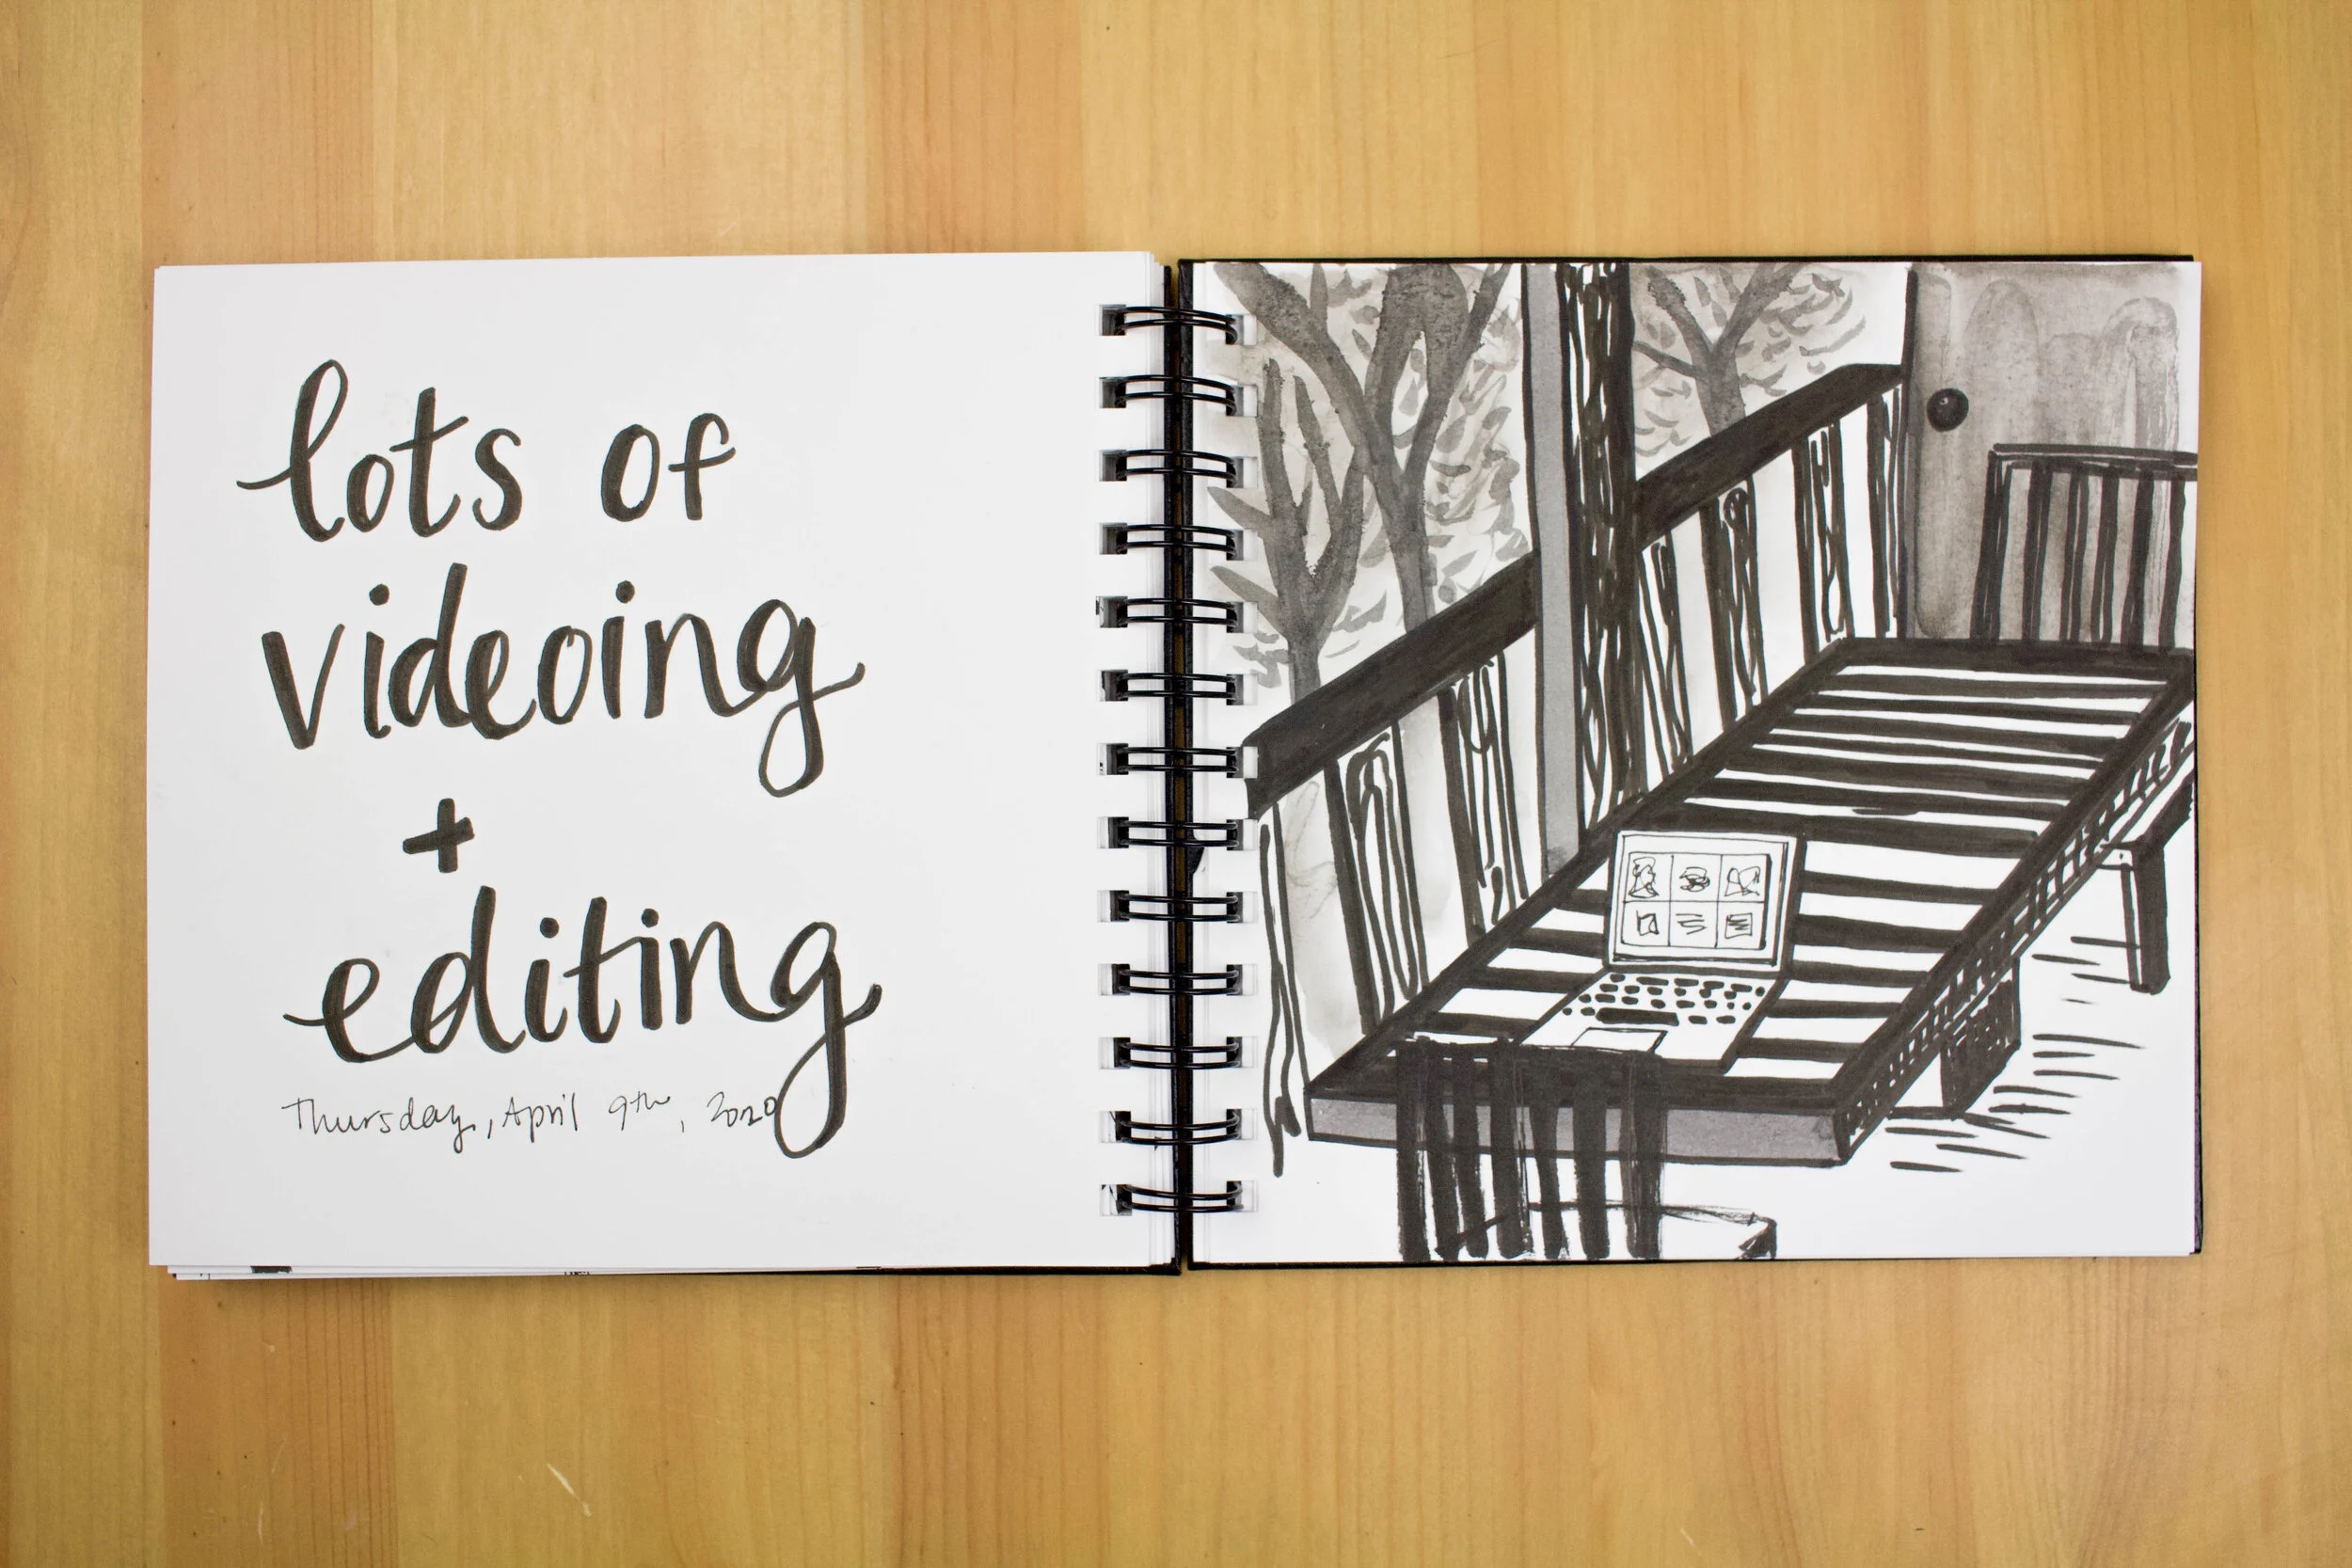 lots of
videoing
+
editing
Thursday, April 9th, 2020